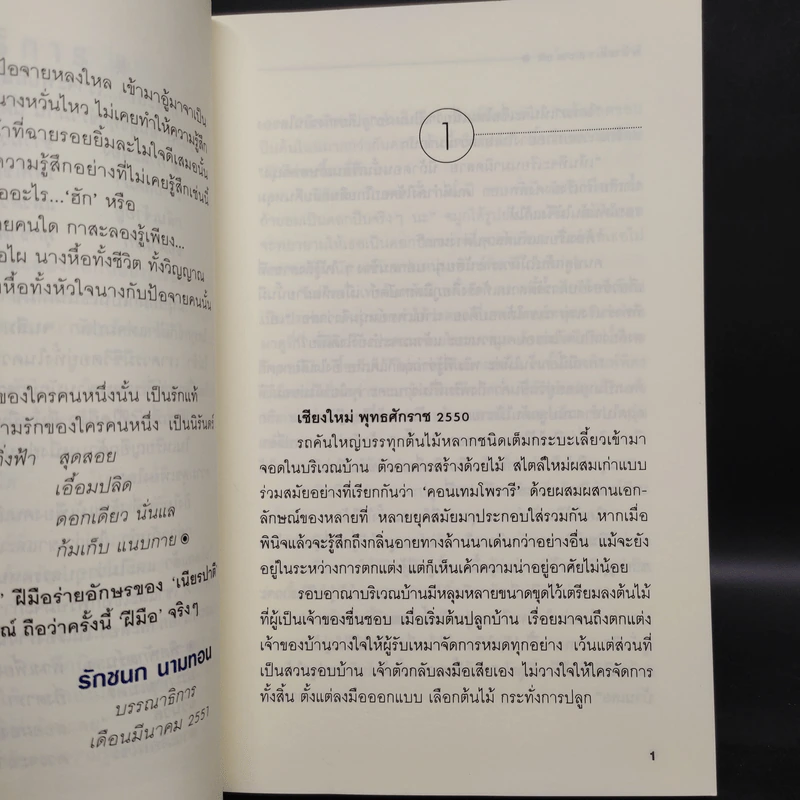 ป้อจายหลงใหล เข้ามาอู้มาจาเป็น
นางหวั่นไหว ไม่เคยทำให้ความรู้สึก
ที่ฉายรอยยิ้มละไมใจดีเสมอนั้น
ความรู้สึกอย่างที่ไม่เคยรู้สึกเช่นนี้
คืออะไร...‘ฮัก’ หรือ
คนใด กาสะลองรู้เพียง...
ไผ นางหื้อทั้งชีวิต ทั้งวิญญาณ
หื้อทั้งหัวใจนางกับป้อจายคนนั้น
ของใครคนหนึ่งนั้น เป็นรักแท้
ความรักของใครคนหนึ่ง เป็นนิรันดร์
กิ่งฟ้า สุดสอย
เอื้อมปลิด
ดอกเดียว นั่นแล
ก้มเก็บ แนบกาย
ฝีมือร่ายอักษรของ ‘เนียรปาตี
ถือว่าครั้งนี้ ‘ฝีมือ’ จริงๆ
รักชนก นามทอน
บรรณาธิการ
เดือนมีนาคม 2551
1
เชียงใหม่ พุทธศักราช 2550
รถคันใหญ่บรรทุกต้นไม้หลากชนิดเต็มกระบะเลี้ยวเข้ามา
จอดในบริเวณบ้าน ตัวอาคารสร้างด้วยไม้ สไตล์ใหม่ผสมเก่าแบบ
ร่วมสมัยอย่างที่เรียกกันว่า ‘คอนเทมโพรารี’ ด้วยผสมผสานเอก-
ลักษณ์ของหลายที่ หลายยุคสมัยมาประกอบใส่รวมกัน หากเมื่อ
พินิจแล้วจะรู้สึกถึงกลิ่นอายทางล้านนาเด่นกว่าอย่างอื่น แม้จะยัง
อยู่ในระหว่างการตกแต่ง แต่ก็เห็นเค้าความน่าอยู่อาศัยไม่น้อย
รอบอาณาบริเวณบ้านมีหลุมหลายขนาดขุดไว้เตรียมลงต้นไม้
ที่ผู้เป็นเจ้าของชื่นชอบ เมื่อเริ่มต้นปลูกบ้าน เรื่อยมาจนถึงตกแต่ง
เจ้าของบ้านวางใจให้ผู้รับเหมาจัดการหมดทุกอย่าง เว้นแต่ส่วนที่
เป็นสวนรอบบ้าน เจ้าตัวกลับลงมือเสียเอง ไม่วางใจให้ใครจัดการ
ทั้งสิ้น ตั้งแต่ลงมือออกแบบ เลือกต้นไม้ กระทั่งการปลูก
1